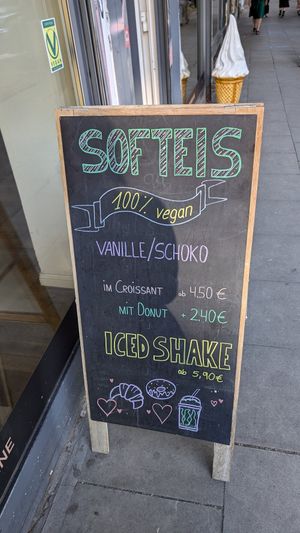 SOFTEIS
100% vegan
VANILLE/SCHOKO
IM CROISSANT ab 4.50 €
MIT DONUT + 2.40€
ICED SHAKE
ab 5,90 €
NE